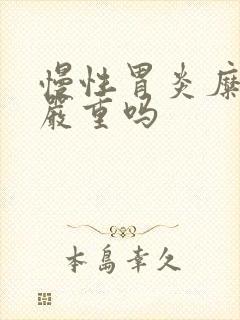 慢性胃炎糜
严重吗
本岛幸久